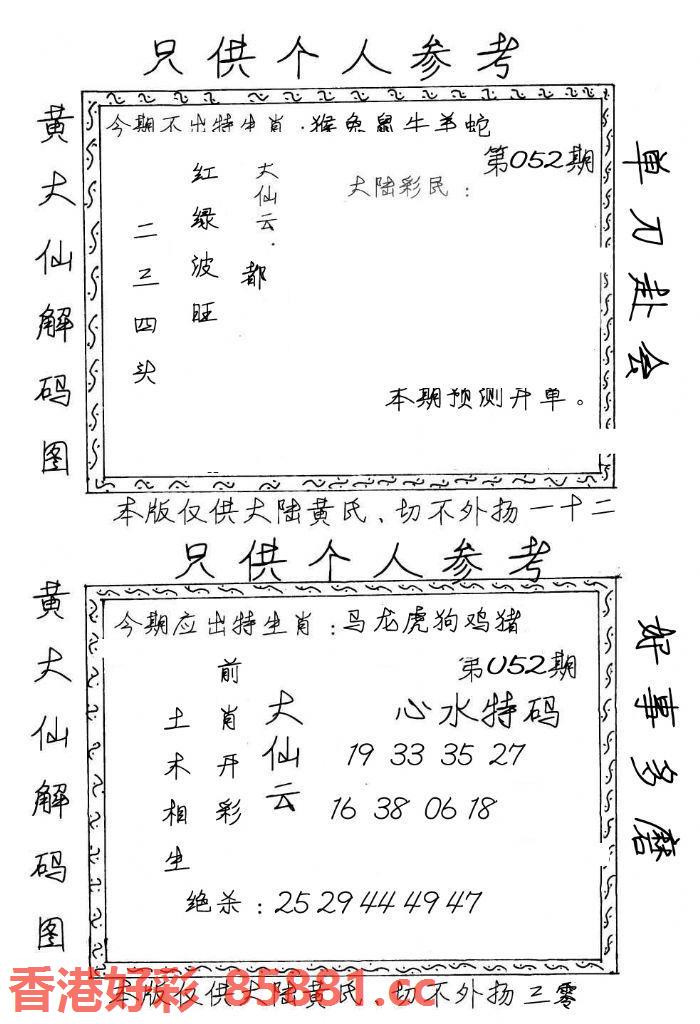 只供个人参考
黄大仙解码图
今期不出特生肖．猴兔鼠牛羊蛇
第052期
大陆彩民：
大仙云．都
红绿波旺
二三四头
本期预测开单。
单刀赴会
本版仅供大陆黄氏、切不外扬一十二
只供个人参考
黄大仙解码图
今期应出特生肖：马龙虎狗鸡猪
第052期
心水特码
19 33 35 27
16 38 06 18
大仙云
前肖开彩
土木相生
绝杀：25 29 44 49 47
好事多磨
本版仅供大陆黄氏、切不外扬三零
香港好彩 85881.cc